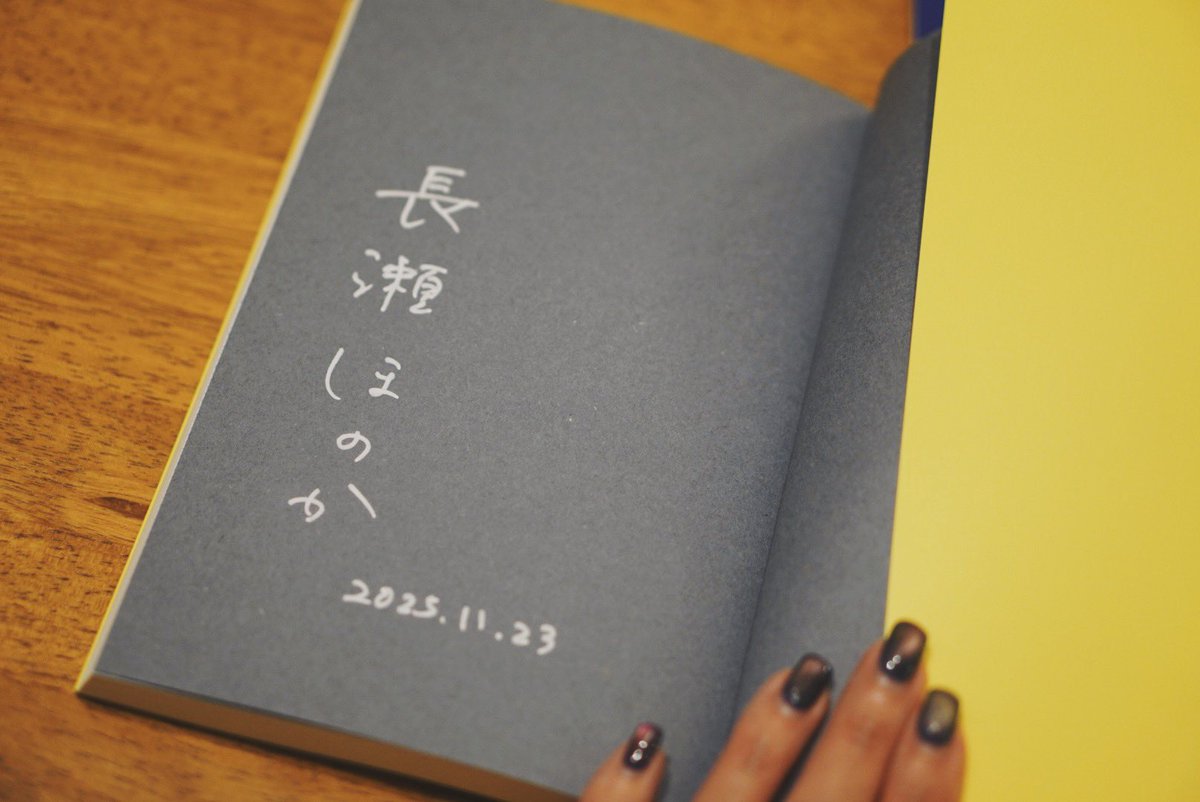 長瀬ほのか
2025.11.23